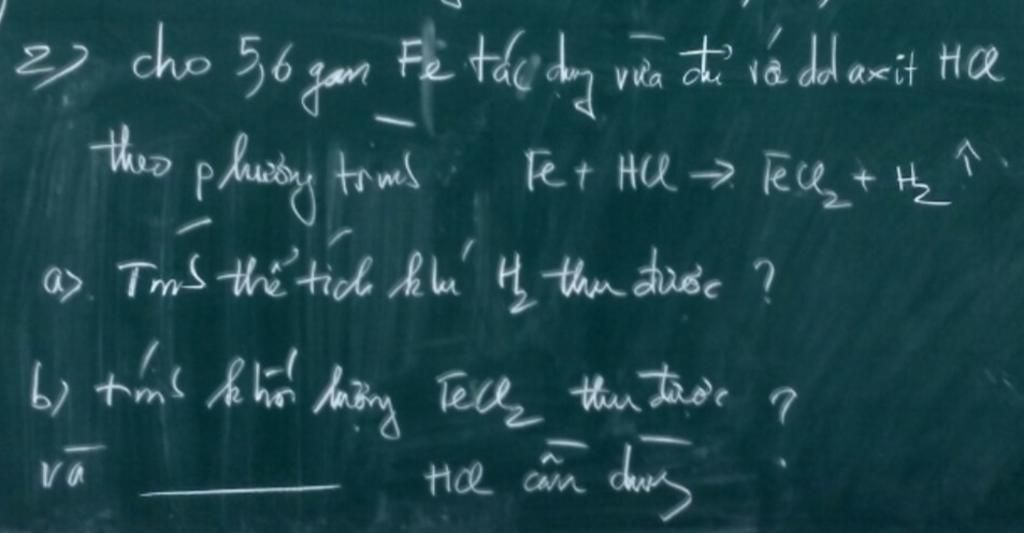 2) cho 5,6 gam Fe tác dụng vừa đủ với dd axit HCl
theo phương trình Fe + HCl → FeCl₂ + H₂ ↑
a) Tính thể tích khí H₂ thu được ?
b) tính khối lượng FeCl₂ thu được ?
và ________ HCl cần dùng